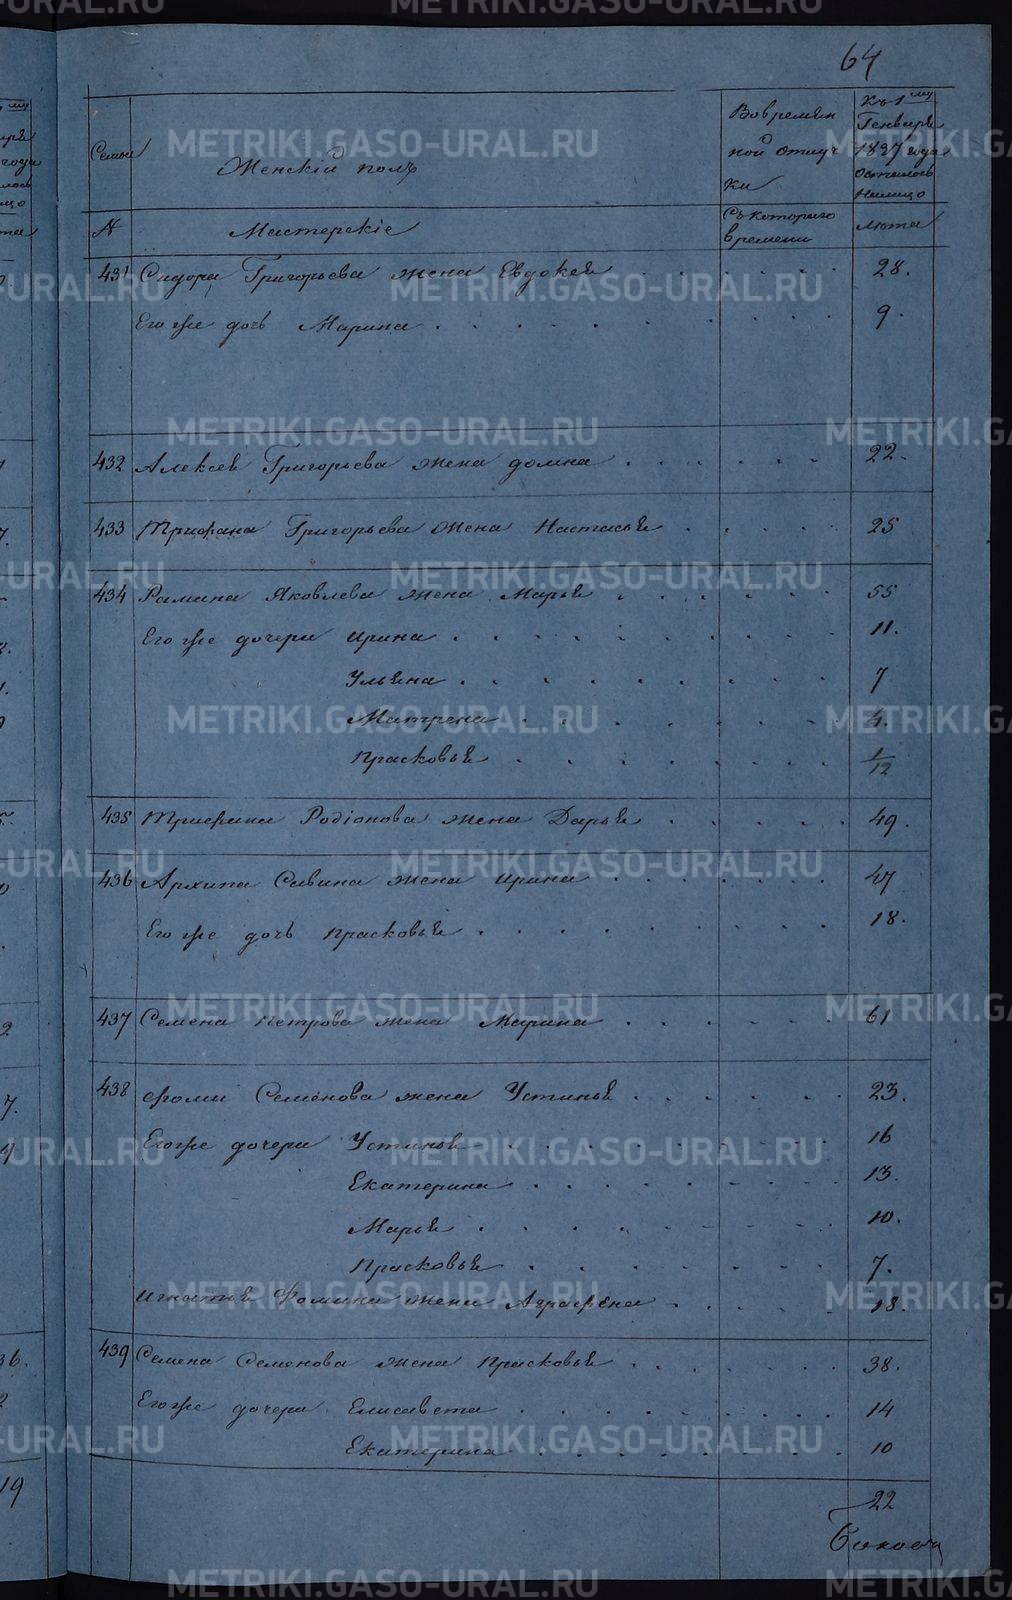 64
Семьи
Женскій полъ
Во времян
ной отлуч
ки
Къ 1му
Генваря
1837 года
осталось
налицо
№
Мастерскіе
Съ котораго
времени
лѣта
431 Сидора Григорьева жена Евдокея 28.
Его же дочь Марина 9.
432 Алексея Григорьева жена домна 22.
433 Трифана Григорьева жена Настасья 25
434 Яковлева жена Марья 55
Его же дочери Ирина 11.
Ульяна 7
Матрена 4.
Прасковья 1/12
435 Родіонова жена Дарья 49.
436 Архипа Савина жена Ирина 47
Его же дочь Прасковья 18.
437 Семена Петрова жена Марина 61
438 Фомы Семенова жена Устинья 23.
Его же дочери Устинья 16
Екатерина 13.
Марья 10.
Прасковья 7.
Игнатья Фомина жена Аграфена 18.
439 Семена Семенова жена Прасковья 38.
Его же дочери Елисавета 14
Екатерина 10
22
METRIKI.GASO-URAL.RU